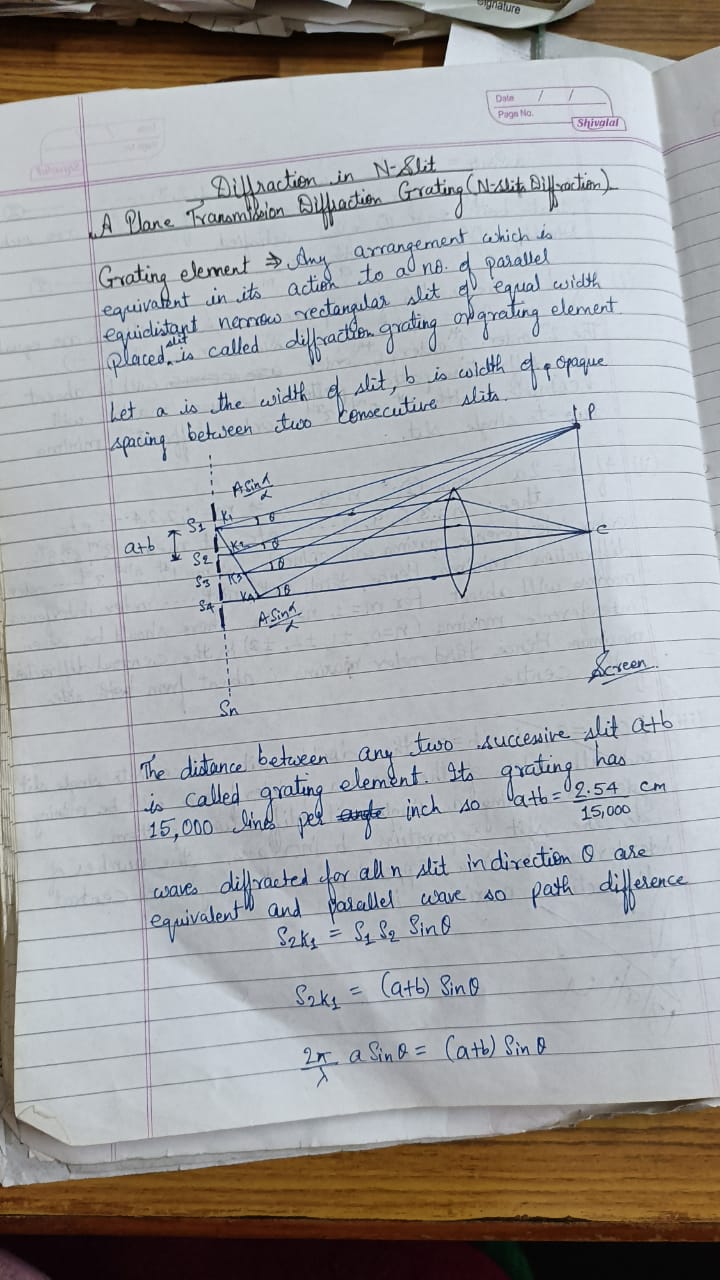 Signature
Date / /
Page No.
Shivalal
Diffraction in N-Slit
A Plane Transmission Diffraction Grating (N-slits Diffraction)
Grating element ⇒ Any arrangement which is
equivalent in its action to a no. of parallel
equidistant narrow rectangular slit of equal width
placed slit is called diffraction grating or grating element.
Let a is the width of slit, b is width of opaque
spacing between two consecutive slits.
P
A Sinα/α
S1 K1 θ
a+b
K2 θ
C
S2
S3 K3 θ
S4 K4 θ
A Sinα/α
Screen
Sn
The distance between any two successive slit a+b
is called grating element. Its grating has
15,000 lines per inch so a+b = 2.54/15,000 cm
waves diffracted for all n slit in direction θ are
equivalent and parallel wave so path difference
S2K1 = S1 S2 Sinθ
S2K1 = (a+b) Sinθ
2π/λ a Sinθ = (a+b) Sinθ